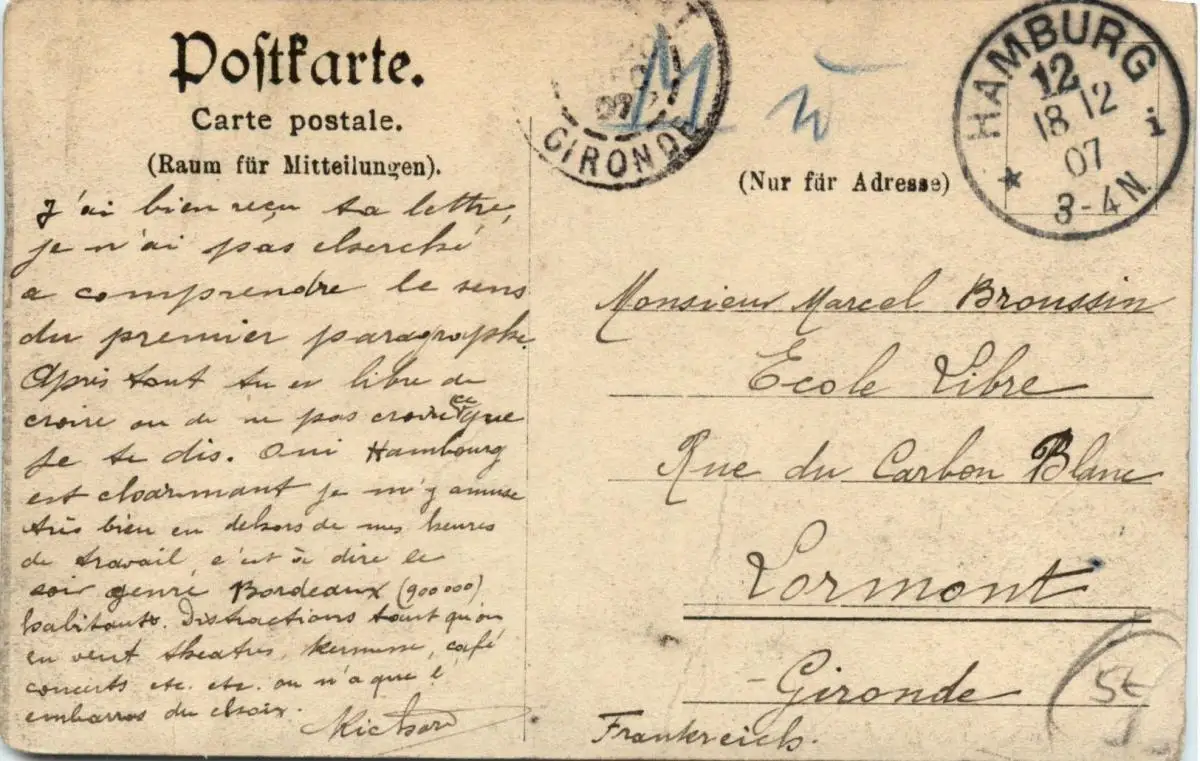 Postkarte.
Carte postale.
(Raum für Mitteilungen).
J'ai bien reçu ta lettre,
je n'ai pas cherché
a comprendre le sens
du premier paragraphe.
Après tout tu es libre de
croire ou de ne pas croire ce que
je te dis. Oui Hambourg
est charmant je m'y amuse
très bien en dehors de mes heures
de travail, c'est à dire le
soir genre Bordeaux (900 000)
habitants. Distractions tant qu'on
en veut theatres, kermesse, café
concerts etc. etc. on n'a que l'
embarras du choix.
Richard
GIRONDE
07
M
HAMBURG
12
18 12
07
3-4 N.
1
(Nur für Adresse)
Monsieur Marcel Broussin
Ecole Libre
Rue du Carbon Blanc
Lormont
Gironde
Frankreich.
5t